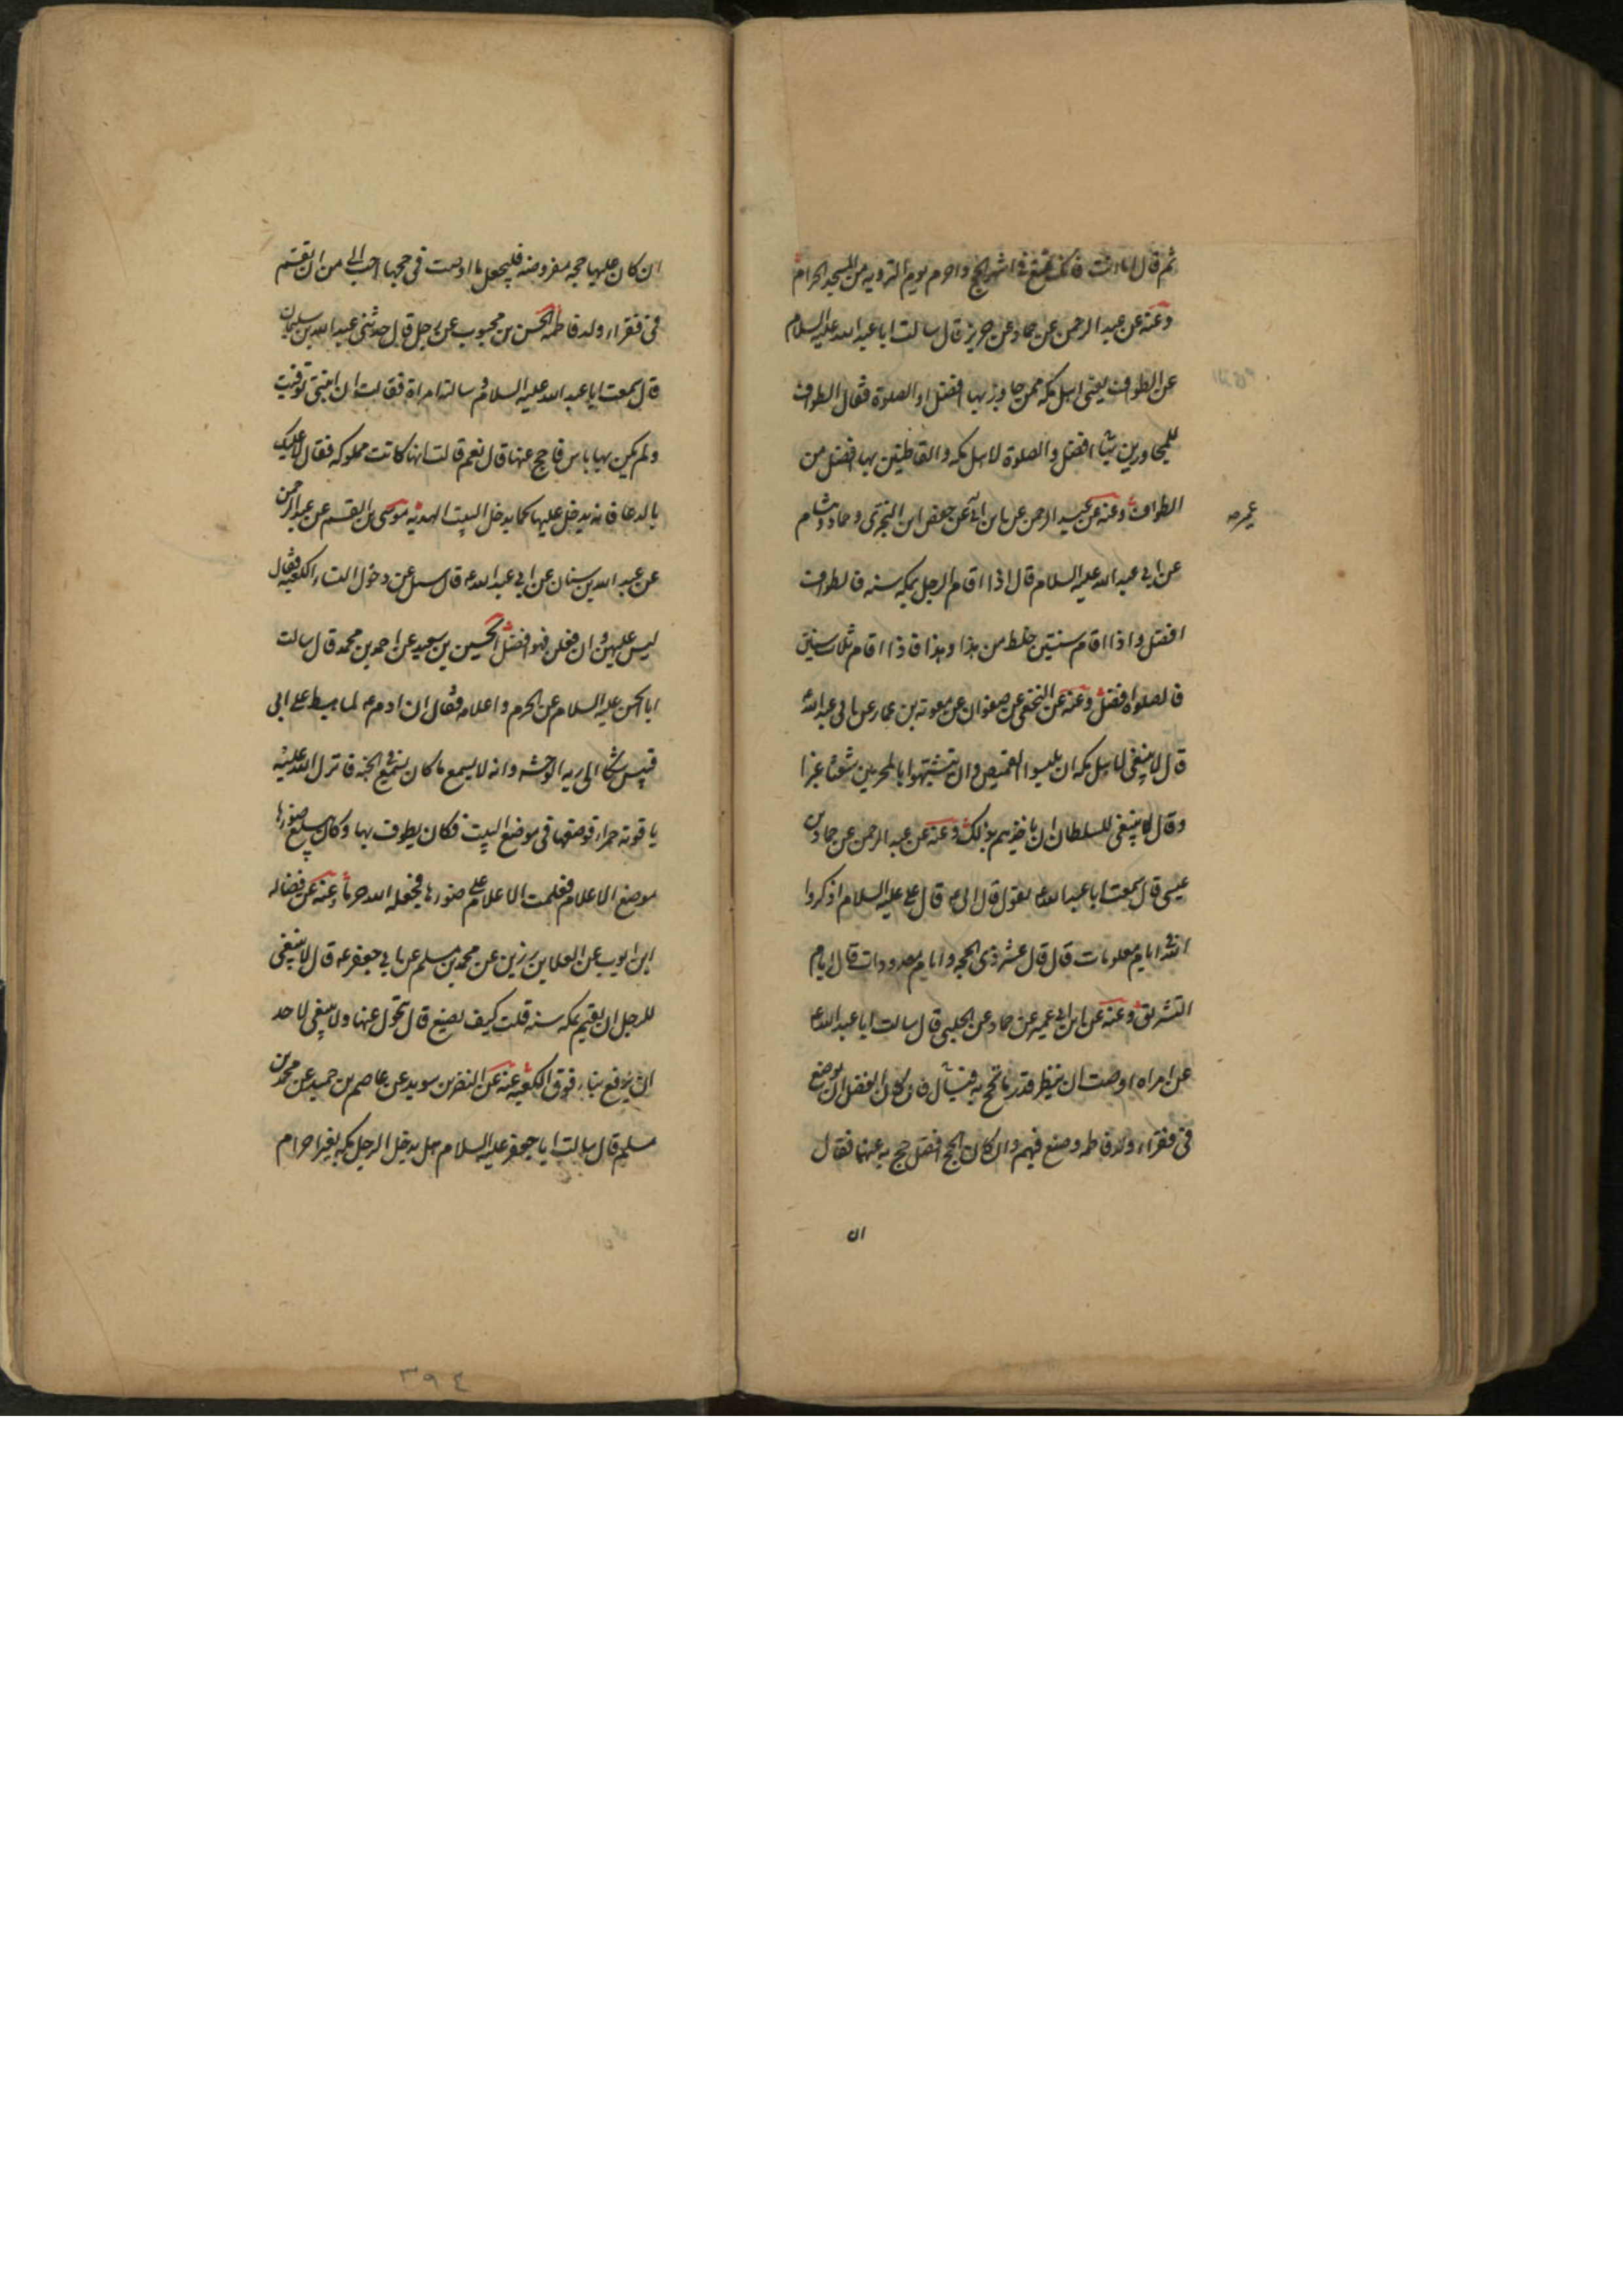 ثم قال اما انت فانك تمتع فى اشهر الحج واحرم يوم الترويه من المسجد الحرام
وعنه عن عبد الرحمن عن حماد عن حريز قال سالت ابا عبد الله عليه السلام
عن الطواف يعنى اهل مكه ممن جاور بها افضل او الصلوة فقال الطواف
للمجاورين افضل والصلوة لاهل مكه والقاطنين بها افضل من
الطواف وعنه عن عبد الرحمن عن ابن ابى عن حفص ابن البخترى وحماد وهشام
عمير صه
عن ابى عبد الله عليه السلام قال اذا اقام الرجل بمكه سنه فالطواف
افضل واذا اقام سنتين خلط من هذا وهذا فاذا اقام ثلث سنين
فالصلوة افضل وعنه عن النخعى عن صفوان عن معويه بن عمار عن ابى عبد الله
قال لا ينبغى لاهل مكه ان يلبسوا القميص وان يتشبهوا بالمحرمين شعثا غبرا
وقال ينبغى للسلطان ان ياخذهم بذلك وعنه عن عبد الرحمن عن حماد بن
عيسى قال سمعت ابا عبد الله ع يقول قال ابى ع قال على عليه السلام اذكروا
الله فى ايام معلومات قال قال عشر ذى الحجه وايام معدودات قال ايام
التشريق وعنه عن ابن ابى عمير عن حماد عن الحلبى قال سالت ابا عبد الله ع
عن امراه اوصت ان ينظر قدر ما يحج به فيسأل فان كان الفضل ان يوضع
فى فقراء ولد فاطمه وضع فيهم وان كان الحج افضل حج به عنها فقال
ان
ان كان عليها حجه مفروضه فليجعل ما اوصت فى حجها احب الى من ان يقسم
فى فقراء ولد فاطمه الحسن بن محبوب عن رجل قال حدثنى عبد الله بن سليمان
قال سمعت ابا عبد الله عليه السلام وسالته امراة فقالت ان ابنتى توفيت
ولم يكن بها باس فاحج عنها قال نعم قالت انها كانت مملوكه فقال لا عليك
بالدعا فانه يدخل عليها كما يدخل البيت الهديه موسى بن القسم عن عبد الرحمن
عن عبد الله بن سنان عن ابى عبد الله ع قال سئل عن دخول النساء الكعبه فقال
ليس عليهن وان فعلن فهو افضل الحسين بن سعيد عن احمد بن محمد قال سالت
ابا الحسن عليه السلام عن الحرم واعلامه فقال ان ادم ع لما هبط على ابى
قبيس شكا الى ربه الوحشه وانه لا يسمع ما كان يسمع فى الجنه فانزل الله عليه
ياقوته حمراء فوضعها فى موضع البيت فكان يطوف بها وكان يبلغ ضوءها
موضع الاعلام فعلمت الاعلام على ضوءها فجعله الله حرما وعنه عن فضاله
ابن ايوب عن العلا بن رزين عن محمد بن مسلم عن ابى جعفر ع قال لا ينبغى
للرجل ان يقيم بمكه سنه قلت كيف يصنع قال يتحول عنها ولا ينبغى لاحد
ان يرفع بناء فوق الكعبه عنه عن النضر بن سويد عن عاصم بن حميد عن محمد بن
مسلم قال سالت ابا جعفر عليه السلام هل يدخل الرجل مكه بغير احرام
٣٩٤